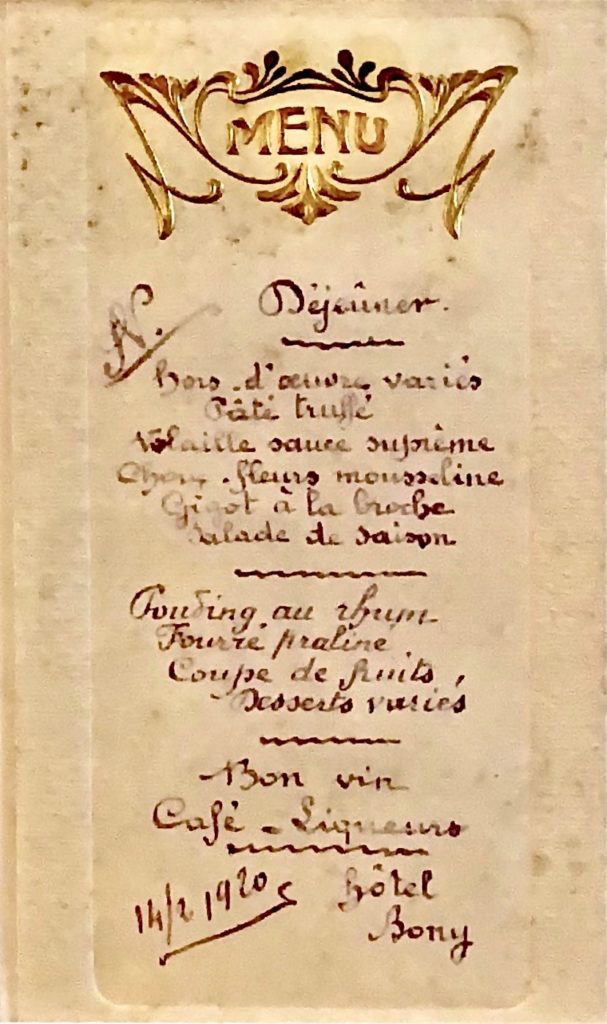 MENU
N.
Déjeûner.
Hors-d'œuvre variés
Pâté truffé
Volaille sauce suprême
Choux-fleurs mousseline
Gigot à la broche
Salade de saison
Pouding au rhum
Fourré praliné
Coupe de fruits,
Desserts variés
Bon vin
Café - Liqueurs
14/2 1920
Hôtel
Bony